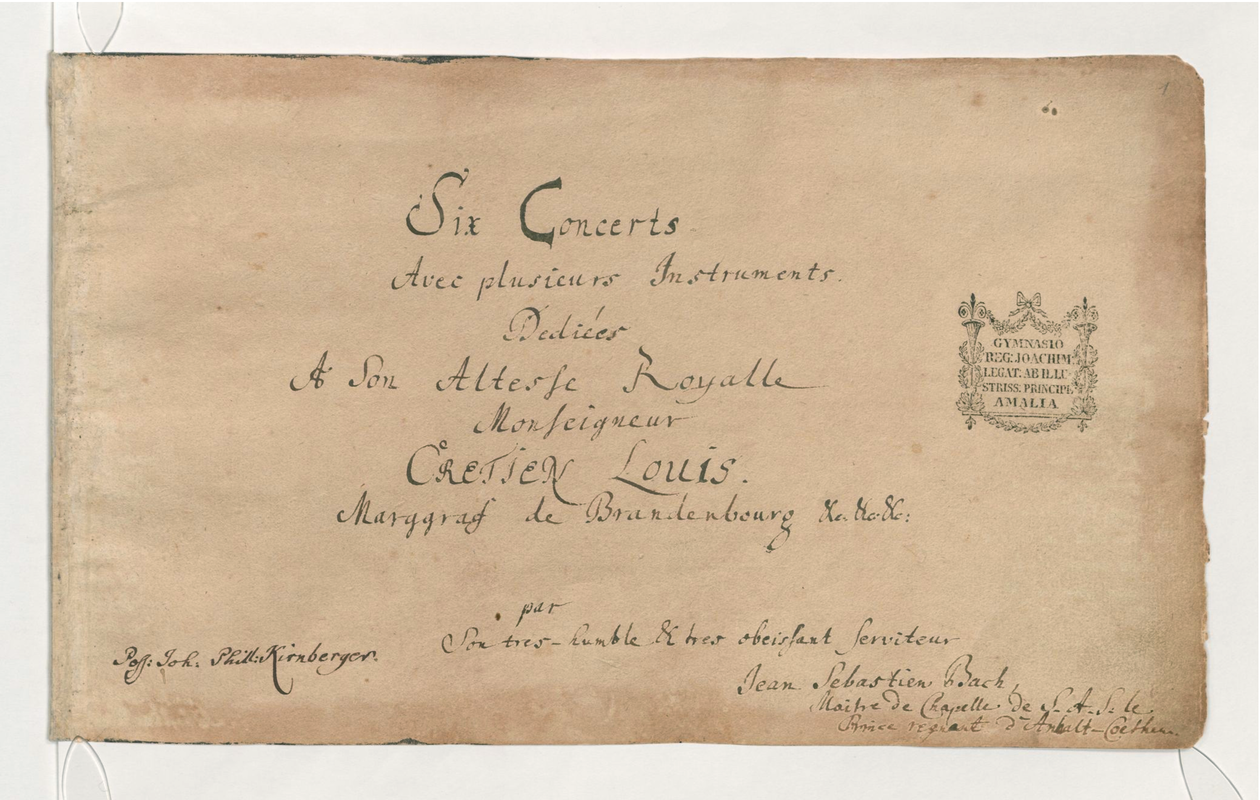 1
6.
Six Concerts
Avec plusieurs Instruments.
Dediées
A Son Altesse Royalle
Monseigneur
CRETIEN Louis.
Marggraf de Brandenbourg &c. &c. &c:
par
Son tres-humble & tres obeissant serviteur
Jean Sebastien Bach,
Maitre de Chapelle de S. A. S. le
Prince regnant d'Anhalt-Coethen.
Poss: Joh: Phill: Kirnberger.
GYMNASIO
REG: JOACHIM
LEGAT: AB ILLU-
STRISS. PRINCIPE
AMALIA